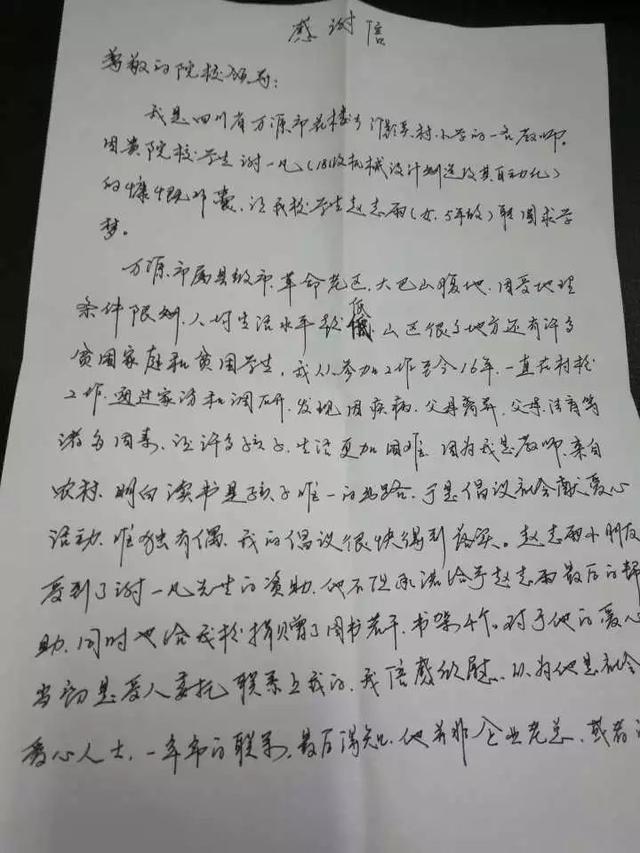 感谢信
尊敬的院校领导：
我是四川省万源市花楼乡 村小学的一名教师。
因贵院校学生谢一凡（18级机械设计制造及其自动化）
的慷慨解囊，让我校学生赵志雨（女，5年级）能圆求学
梦。
万源市属县级市，革命老区，大巴山腹地，因受地理
条件限制，人均生活水平较低，山区很多地方还有许多
贫困家庭和贫困学生，我从参加工作至今16年，一直在村校
工作，通过家访和调研，发现因疾病，父母离异，父母 等
诸多因素，让许多孩子，生活更加困难，因为我是教师，来自
农村，明白读书是孩子唯一的出路，于是倡议社会献爱心
活动，唯独有偶，我的倡议很快得到落实。赵志雨小朋友
受到了谢一凡先生的资助，他不但承诺给予赵志雨最后的帮
助，同时也给我校捐赠了图书若干，书架4个。对于他的爱心
当初是受人委托联系上我的，我倍感欣慰，以为他是社会
爱心人士，一年来的联系，最后得知，他并非企业老总，或者